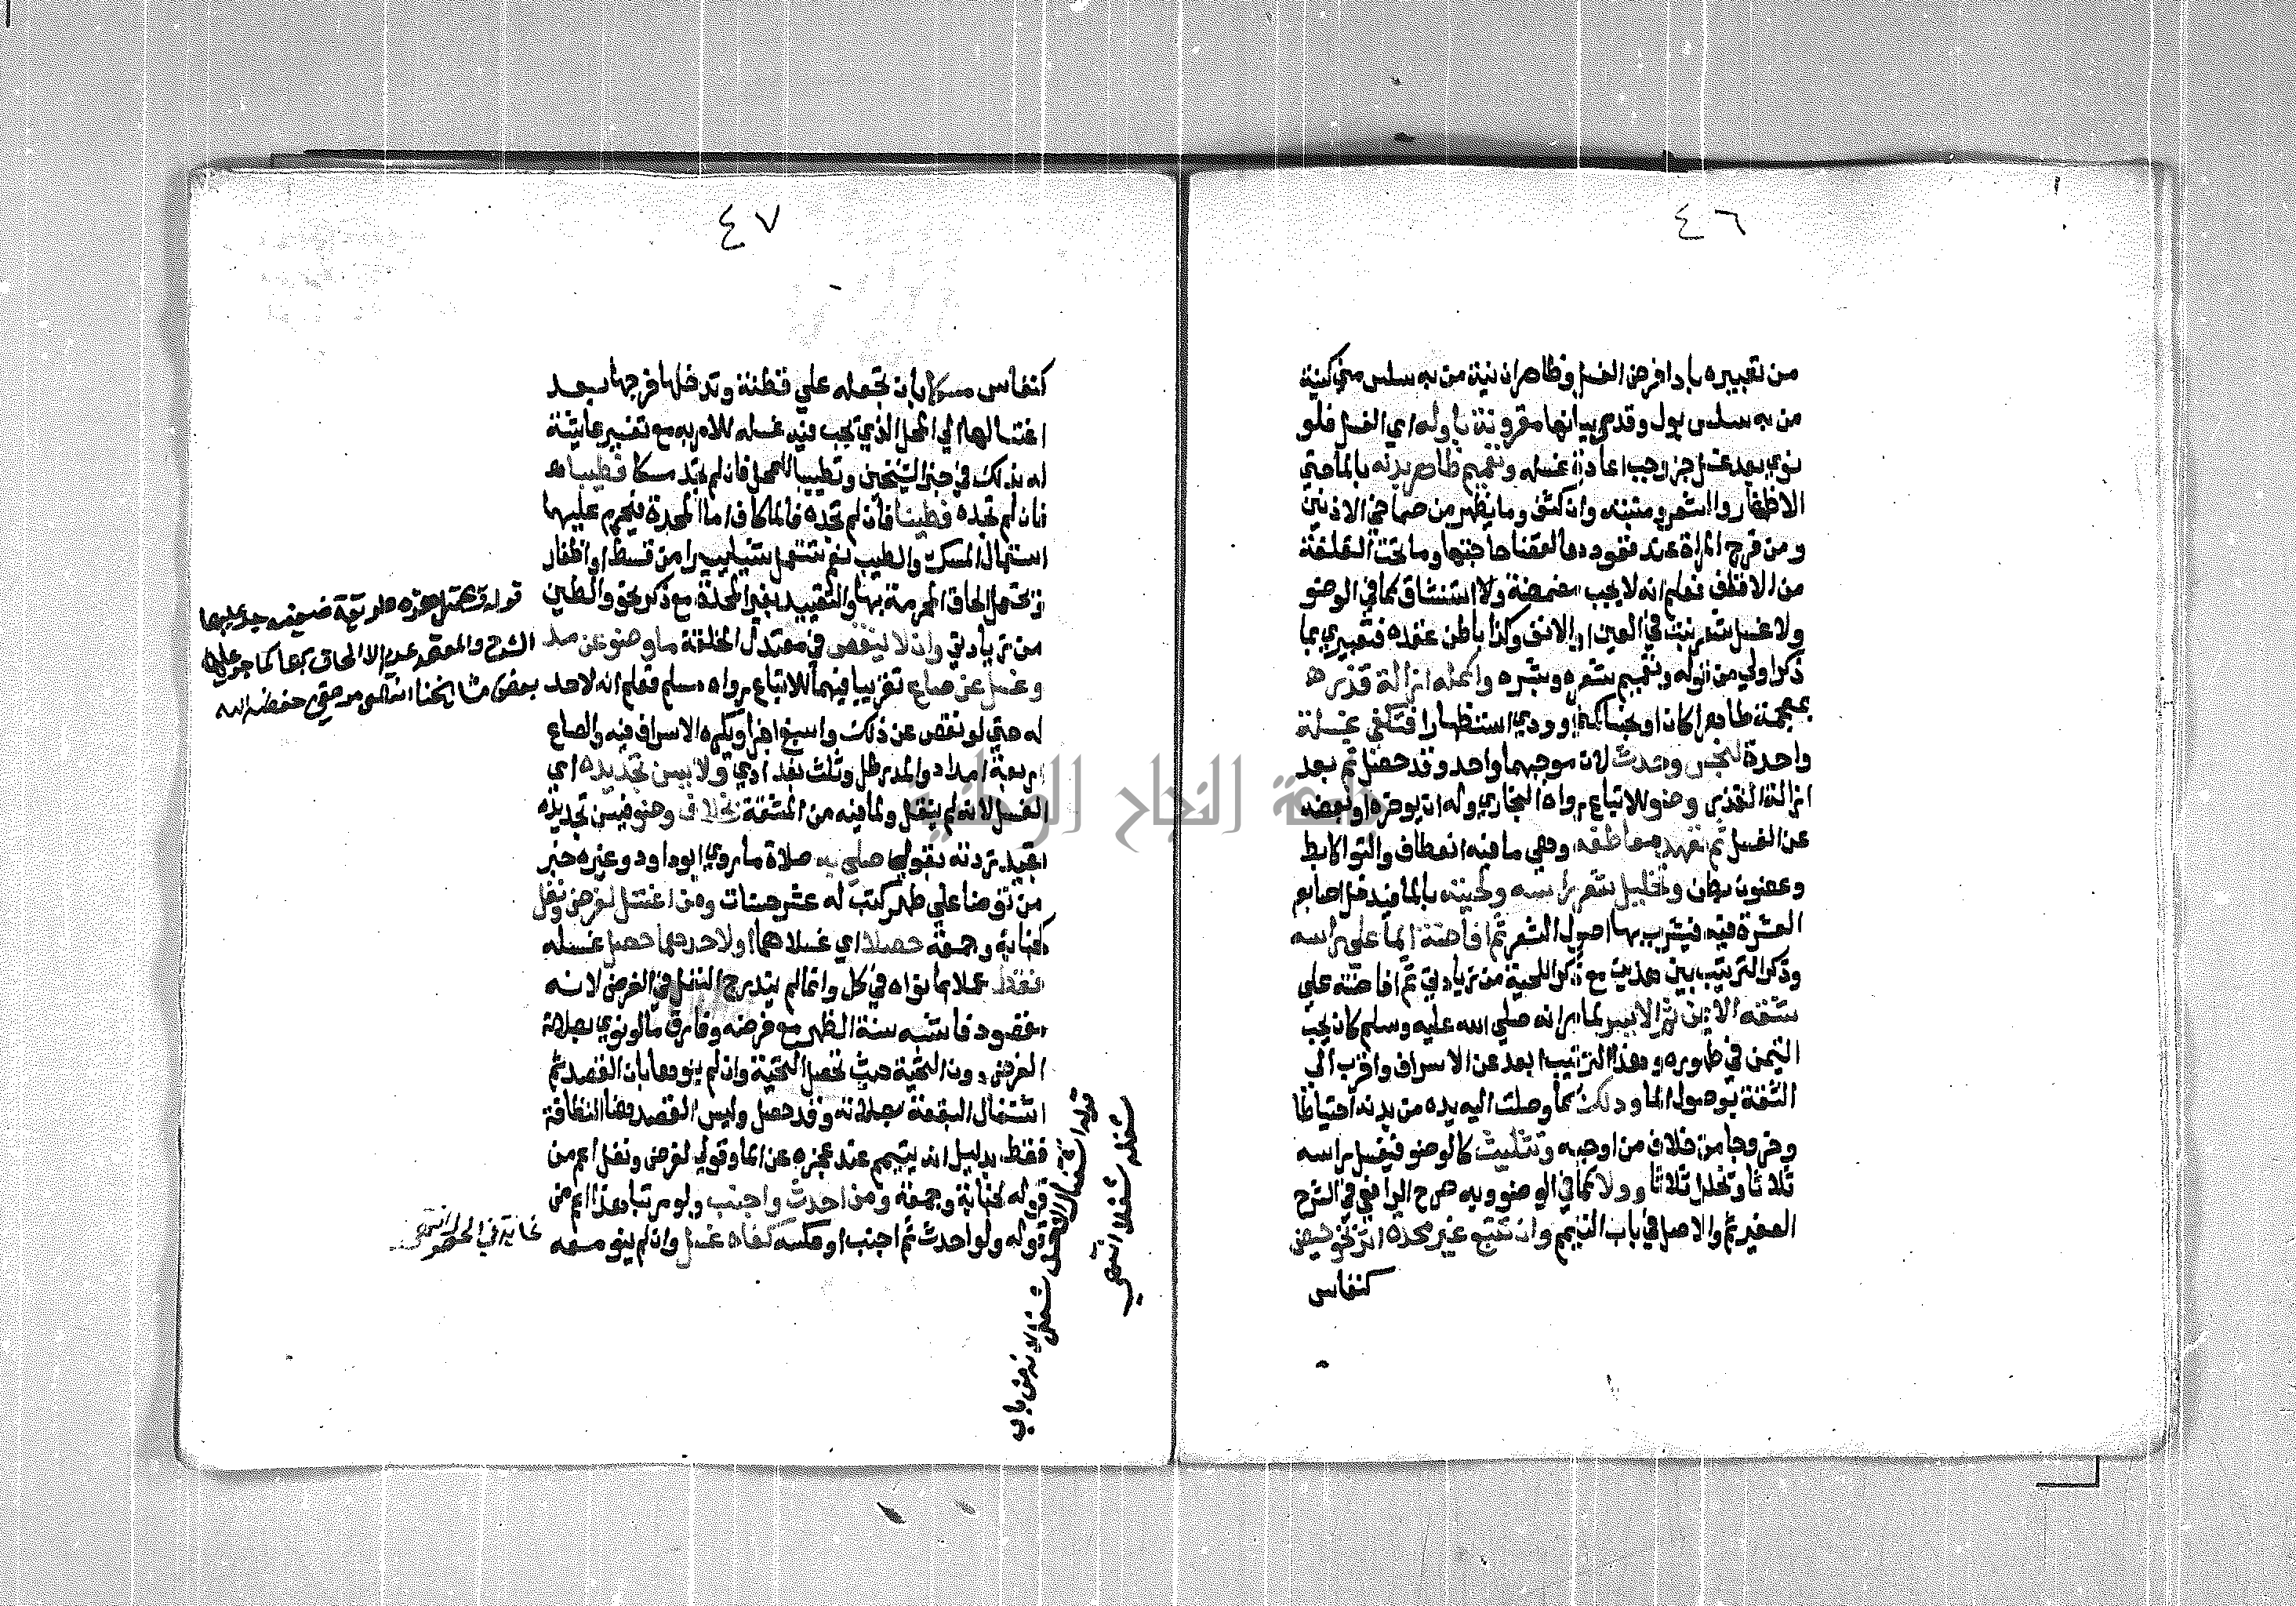 ٤٦
من تعبيره باداء فرض الغسل وظاهر ان نية من به سلس مني كنية
من به سلس بول وقد مر بيانها مقرونة باوله اي الغسل فلو
نوي بعد غسل جزء وجب اعادة غسله وتعميم ظاهر بدنه بالماء حتي
الاظفار والشعر ومنبته وان كثف وما يظهر من صماخي الاذنين
ومن فرج المراة عند قعودها لقضا حاجتها وما تحت القلفة
من الاقلف فعلم انه لا يجب مضمضة ولا استنشاق كما في الوضو
ولا غسل شعر نبت في العين او الانف وكذا باطن عقده فتعبيري بما
ذكر اولي من قوله وتعميم شعره وبشره واكمله ازالة قذر
بمعجمة طاهرا كان او نجسا كمني وودي استظهارا فتكفي غسلة
واحدة لنجس وحدث لان موجبهما واحد وقد حصل ثم بعد
ازالة القذر وضو للاتباع رواه البخاري وله ان يوخره او بعضه
عن الغسل ثم تعهد معاطفه وهي ما فيه انعطاف والتوا كابط
وعضون بطن وتخليل شعر راسه ولحيته بالماء فيدخل اصابعه
العشرة فيه فيشرب بها اصول الشعر ثم افاضة الماء علي راسه
وذكر الترتيب بين هذين مع ذكر اللحية من زيادتي ثم افاضته علي
شقه الايمن ثم الايسر لما مر انه صلي الله عليه وسلم كان يحب
التيمن في طهوره وهذا الترتيب ابعد عن الاسراف واقرب الي
الثقة بوصول الماء ودلك لما وصلت اليه يده من بدنه احتياطا
وخروجا من خلاف من اوجبه وتثليث كالوضو فيغسل راسه
ثلاثا وتخلل ثلاثا وولا كما في الوضو وبه صرح الرافعي في الشرح
الصغير والاصل في باب التيمم وان تتبع غير محدة اثر نحو حيض
كنفاس
٤٧
كنفاس مسكا بان تجعله علي قطنة وتدخلها فرجها بعد
اغتسالها الي المحل الذي يجب غسله للامر به مع تفسير عايشة
له بذلك في خبر الشيخين وتطييبا للمحل فان لم تجد مسكا فطيبا
فان لم تجده فطينا فان لم تجده فالماء كاف اما المحدة فيحرم عليها
استعمال المسك والطيب نعم تستعمل شيا يسيرا من قسط او اظفار
ويحتمل الحاق المحرمة بها والتقييد بغير المحدة مع ذكر نحو والطين
من زيادتي وان لا ينقص في معتدل الخلقة ماء وضو عن مد
وغسل عن صاع تقريبا فيهما للاتباع رواه مسلم فعلم انه لا حد
له حتي لو نقص عن ذلك واسبغ اجزا ويكره الاسراف فيه والصاع
اربعة امداد والمد رطل وثلث بغدادي ولا يسن تجديده اي
الغسل لانه لم ينقل ولما فيه من المشقة بخلاف وضو فيسن تجديده
بقيد زدته بقولي صلي به صلاة ما روي ابو داود وغيره خبر
من توضا علي طهر كتب له عشر حسنات ومن اغتسل لفرض ونفل
كجنابة وجمعة حصلا اي غسلاهما او لاحدهما حصل غسله
فقط عملا بما نواه في كل وانما لم يندرج النفل في الفرض لانه
مقصود فاشبه سنة الظهر مع فرضه وفارق ما لو نوي بصلاته
الفرض دون التحية حيث تحصل التحية وان لم ينوها بان القصد ثم
اشتغال البقعة بصلاة وقد حصل وليس القصد هنا النظافة
فقط بدليل انه يتيمم عند عجزه عن الماء وقولي لفرض ونفل اعم من
قوله لجنابة وجمعة ومن احدث واجنب ولو مرتبا هذا اعم من
قوله ولو احدث ثم اجنب او عكسه كفاه غسل وان لم ينو معه
الشرح والمعتمد عدم الالحاق بها كما جري عليه
بعض مشايخنا انتهي
قوله اشتغال الافصح شغل لانه من باب
شغله شغلا انتهي
جامعة النجاح الوطنية